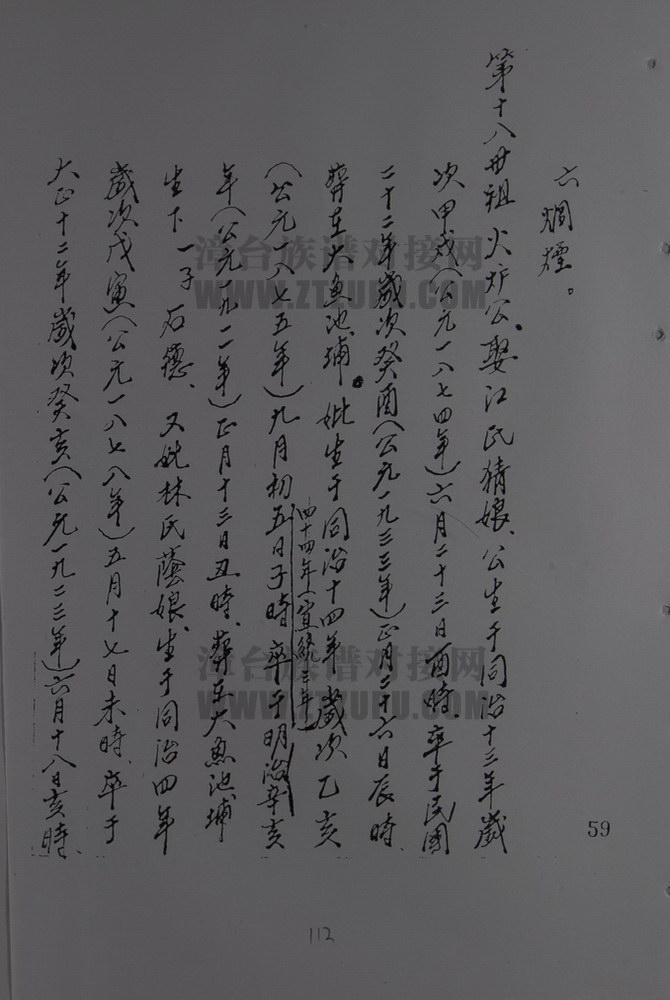 六烟煙。
第十八世祖火炉公、娶江氏猜娘、公生于同治十三年歲
次甲戌（公元一八七四年）六月二十三日酉時、卒于民國
二十二年歲次癸酉（公元一九三三年）正月二十六日辰時、
葬在大魚池埔。妣生于同治十四年歲次乙亥
（公元一八七五年）九月初五日子時卒于明治辛亥
四十四年（宣統三年）
年（公元一九一一年）正月十三日丑時、葬在大魚池埔
生下一子石德、又妣林氏蔭娘、生于同治四年
歲次戊寅（公元一八七八年）五月十七日未時、卒于
大正十二年歲次癸亥（公元一九二三年）六月十八日亥時、
59
112
漳台族谱对接网
WWW.ZTZUPU.COM
漳台族谱对接网
WWW.ZTZUPU.COM